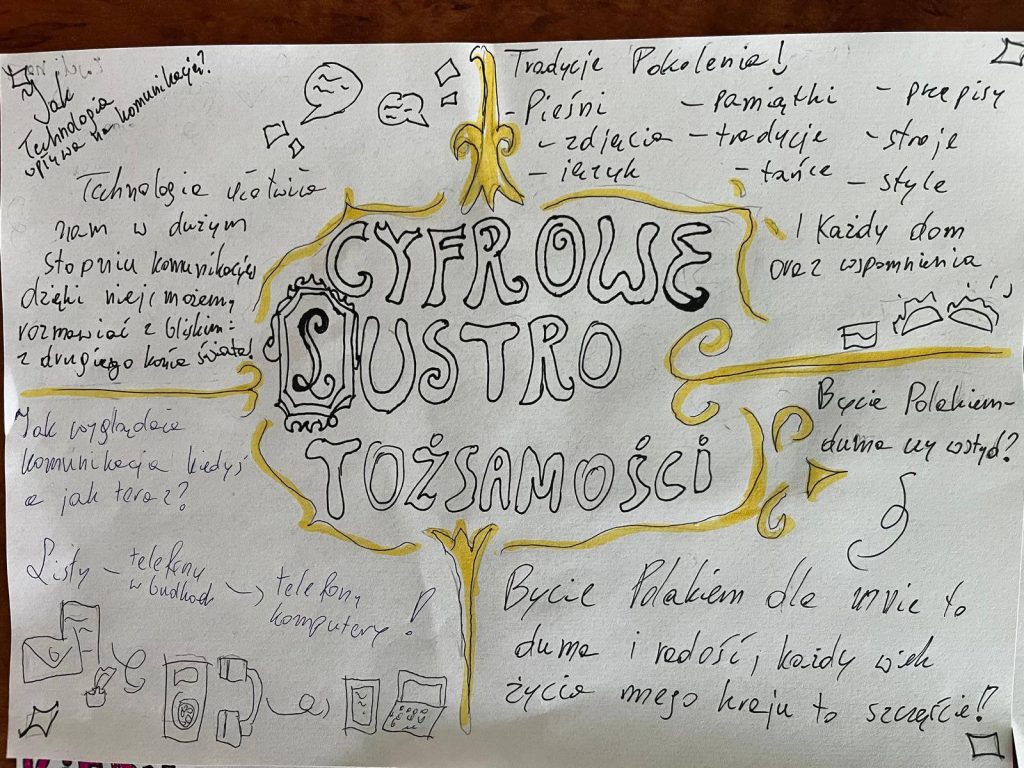 Jak
Technologia
wpływa na komunikację?
Technologia ułatwia
nam w dużym
stopniu komunikację
dzięki niej możemy
rozmawiać z bliskimi
z drugiego końca świata!
Tradycje Pokolenia!
- Pieśni - pamiątki - przepisy
- zdjęcia - tradycje - stroje
- język - tańce - style
I Każdy dom
oraz wspomnienia
CYFROWE
LUSTRO
TOŻSAMOŚCI
Jak wyglądała
komunikacja kiedyś
a jak teraz?
Listy - telefony
w budkach -> telefony
komputery!
Bycie Polakiem-
duma czy wstyd?
Bycie Polakiem dla mnie to
duma i radość, każdy wiek
życia mego kraju to szczęście!